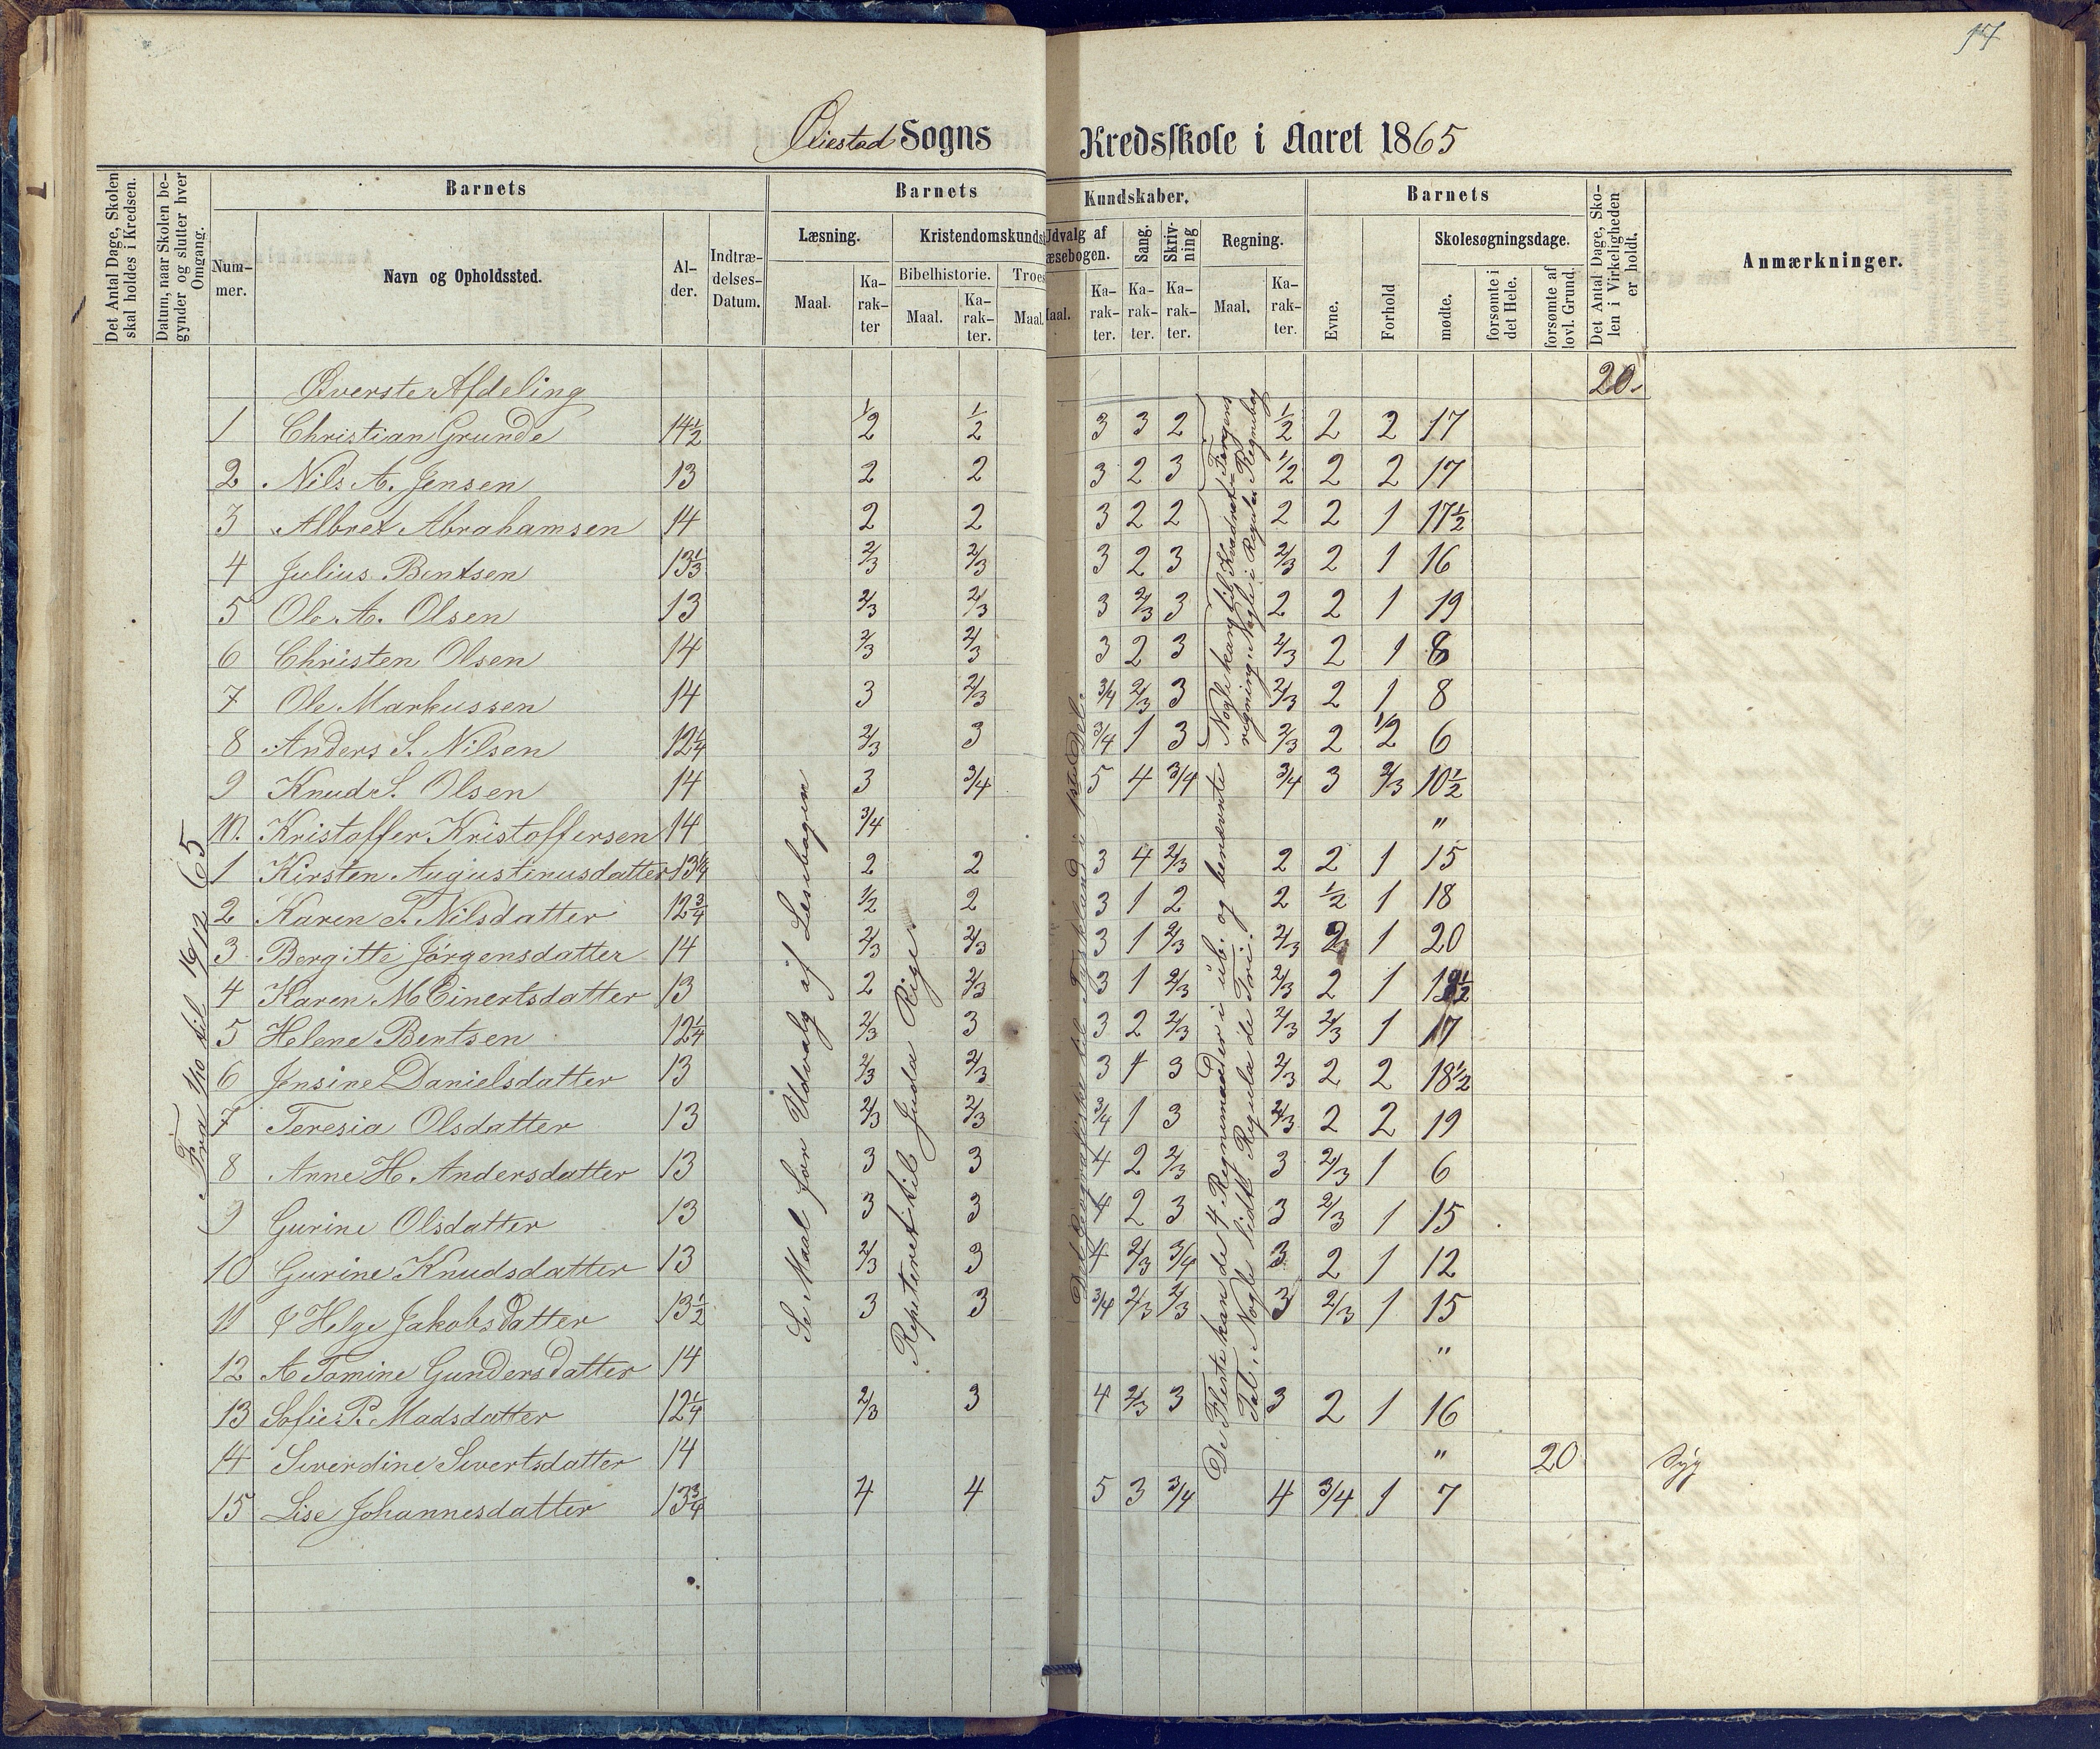 17
Øiestad Sogns Kredsskole i Aaret 1865
Det Antal Dage, Skolen skal holdes i Kredsen.
Datum, naar Skolen begynder og slutter hver Omgang.
Barnets
Nummer.
Navn og Opholdssted.
Alder.
Indtrædelses-Datum.
Barnets Kundskaber.
Læsning.
Maal.
Karakter
Kristendomskunds
Bibelhistorie.
Maal.
Karakter.
Troes
Maal.
Udvalg af
æsebogen.
aal.
Karakter.
Sang.
Karakter.
Skrivning
Karakter.
Regning.
Maal.
Karakter.
Barnets
Evne.
Forhold
Skolesøgningsdage.
mødte.
forsømte i det Hele.
forsømte af lovl. Grund.
Det Antal Dage, Skolen i Virkeligheden er holdt.
Anmærkninger.
Øverste Afdeling 20.
1 Christian Grunde 14½ 1/2 1/2 3 3 2 1/2 2 2 17
2 Nils A. Jensen 13 2 2 3 2 3 1/2 2 2 17
3 Albret Abrahamsen 14 2 2 3 2 2 2 2 1 17½
4 Julius Bentsen 13⅓ 2/3 2/3 3 2 3 2/3 2 1 16
5 Ole A. Olsen 13 2/3 2/3 3 2/3 3 2 2 1 19
6 Christen Olsen 14 2/3 2/3 3 2 3 2/3 2 1 8
7 Ole Markussen 14 3 2/3 3/4 2/3 3 2/3 2 1 8
8 Anders S. Nilsen 12¼ 2/3 3 3/4 1 3 2/3 2 1/2 6
9 Knud S. Olsen 14 3 3/4 5 4 3/4 3/4 3 2/3 10½
10. Kristoffer Kristoffersen 14 3/4 "
1 Kirsten Augustinusdatter 13¼ 2 2 3 4 2/3 2 2 1 15
2 Karen T. Nilsdatter 12¾ 1/2 2 3 1 2 2 1/2 1 18
3 Bergitte Jørgensdatter 14 2/3 2/3 3 1 2/3 2/3 2 1 20
4 Karen M Einertsdatter 13 2 2/3 3 1 2/3 2/3 2 1 19½
5 Helene Bentsen 12¼ 2/3 3 3 2 2/3 2/3 2/3 1 17
6 Jensine Danielsdatter 13 2/3 2/3 3 1 3 2/3 2 2 18½
7 Teresia Olsdatter 13 2/3 2/3 3/4 1 3 2/3 2 2 19
8 Anne H. Andersdatter 13 3 3 4 2 2/3 3 2/3 1 6
9 Gurine Olsdatter 13 3 3 4 2 3 3 2/3 1 15
10 Gurine Knudsdatter 13 2/3 3 4 2/3 3/4 3 2 1 12
11 Helge Jakobsdatter 13½ 3 3 3/4 2/3 2/3 3 2/3 1 15
12 A Tomine Gundersdatter 14 "
13 Sofie P. Madsdatter 12¼ 2/3 3 4 2/3 3 3 2 1 16
14 Siverdine Sivertsdatter 14 " 20 Syg
15 Lise Johannesdatter 13¾ 4 4 5 3 3/4 4 3/4 1 7
Fra 1/10 til 19/12 65
Se Maal for Udvalg af Læsebogen
Repeteret til Juda Riges
Det Geografiske til Tyskland i 1ste Del.
Nogle kan til Kvadrat
regning. Nogle i Regula
Regnebog
De Fleste kan de 4 Regnemaader i üb. og benævnte
Tal. Nogle lidt Regula de Tri.